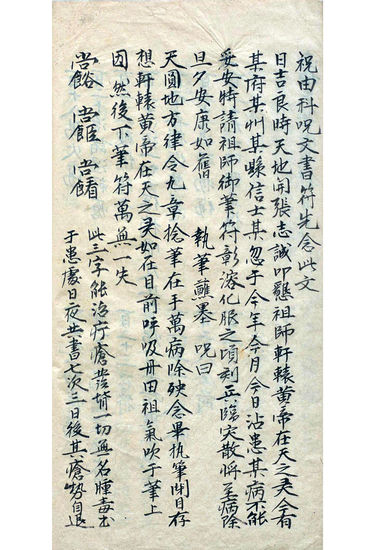 祝由科咒文書符先念此文
日吉良時天地開張志誠叩懇祖師軒轅黄帝在天之灵今有
某府某州某縣信士某忽于今年今月今日沾患某病不能
妥安特請祖師御筆符彰溶化服之頃刻兵臨突散將至病除
旦夕安康如舊 執筆蘸墨 咒曰
天圓地方律令九章捻筆在手萬病除殃念畢执筆閉目存
想軒轅黄帝在天之灵如在目前呼吸丹田祖氣吹于筆上
因 然後下筆符萬無一失
此三字能治疔瘡發背一切無名腫毒书
于患處日夜共書七次三日後其瘡勢自退